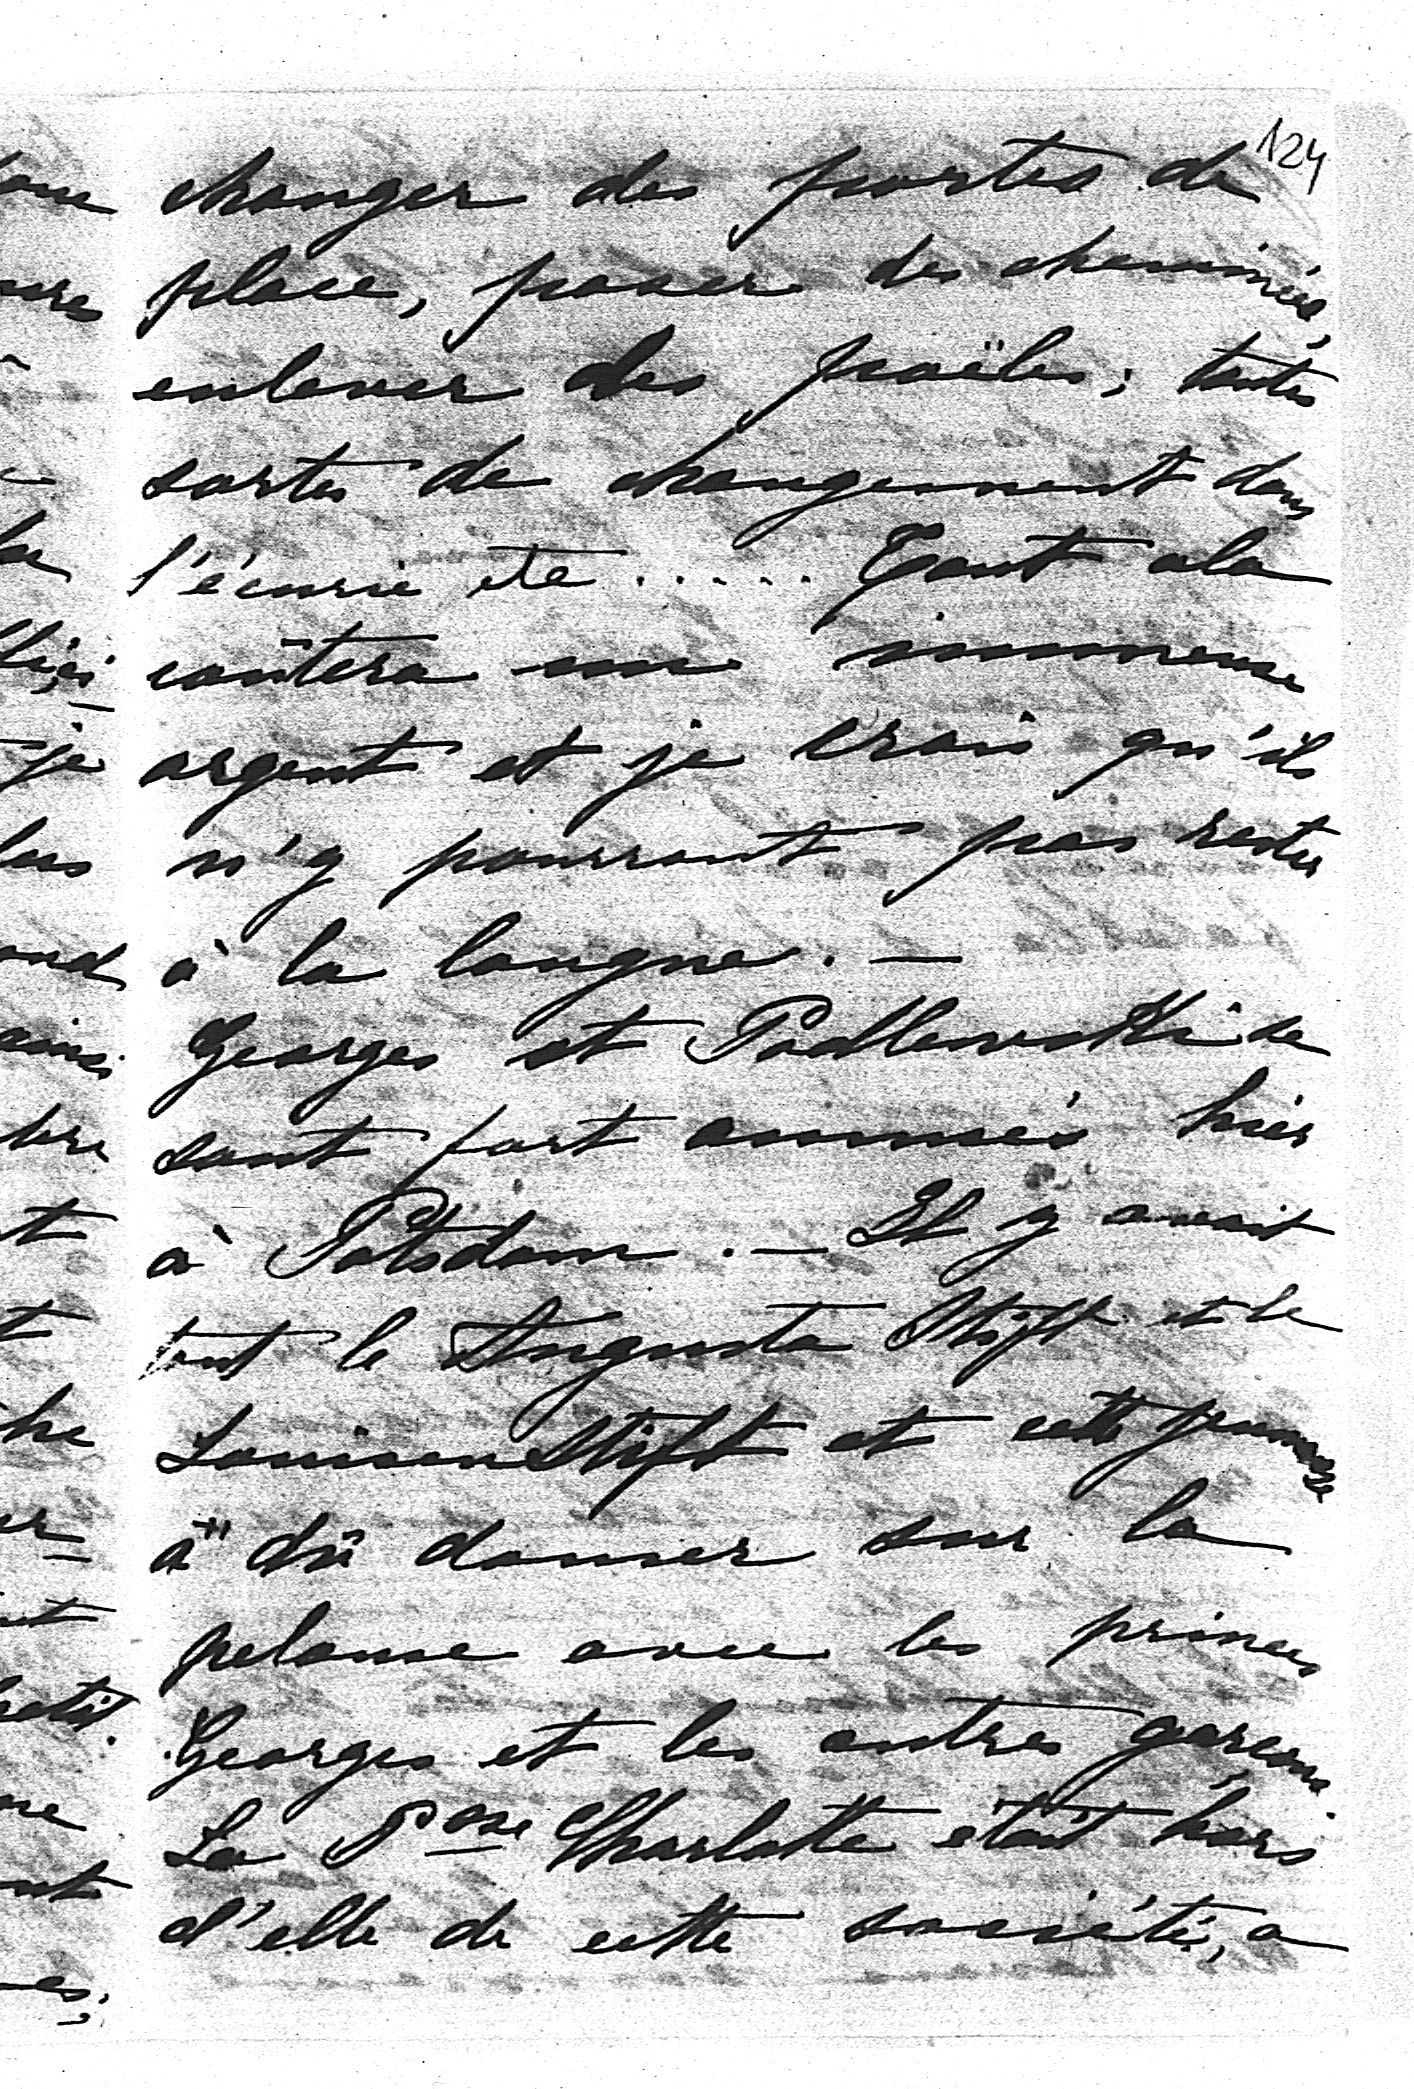 124
changer des portes de
place, poser des cheminées,
enlever des poëles; toutes
sortes de changement dans
l'écurie etc ..... Tout cela
coûtera un immense
argent et je crois qu'ils
n'y pourront pas rester
à la longue. —
Georges et Podlewski se
sont fort amusés hier
à Potsdam. — Il y avait
tout le Augusta Stift et le
Louisen Stift et cette jeunesse
a dû danser sur la
pelouse avec les princes
Georges et les autres garçons.
La Psse Charlotte était hors
d'elle de cette société, a